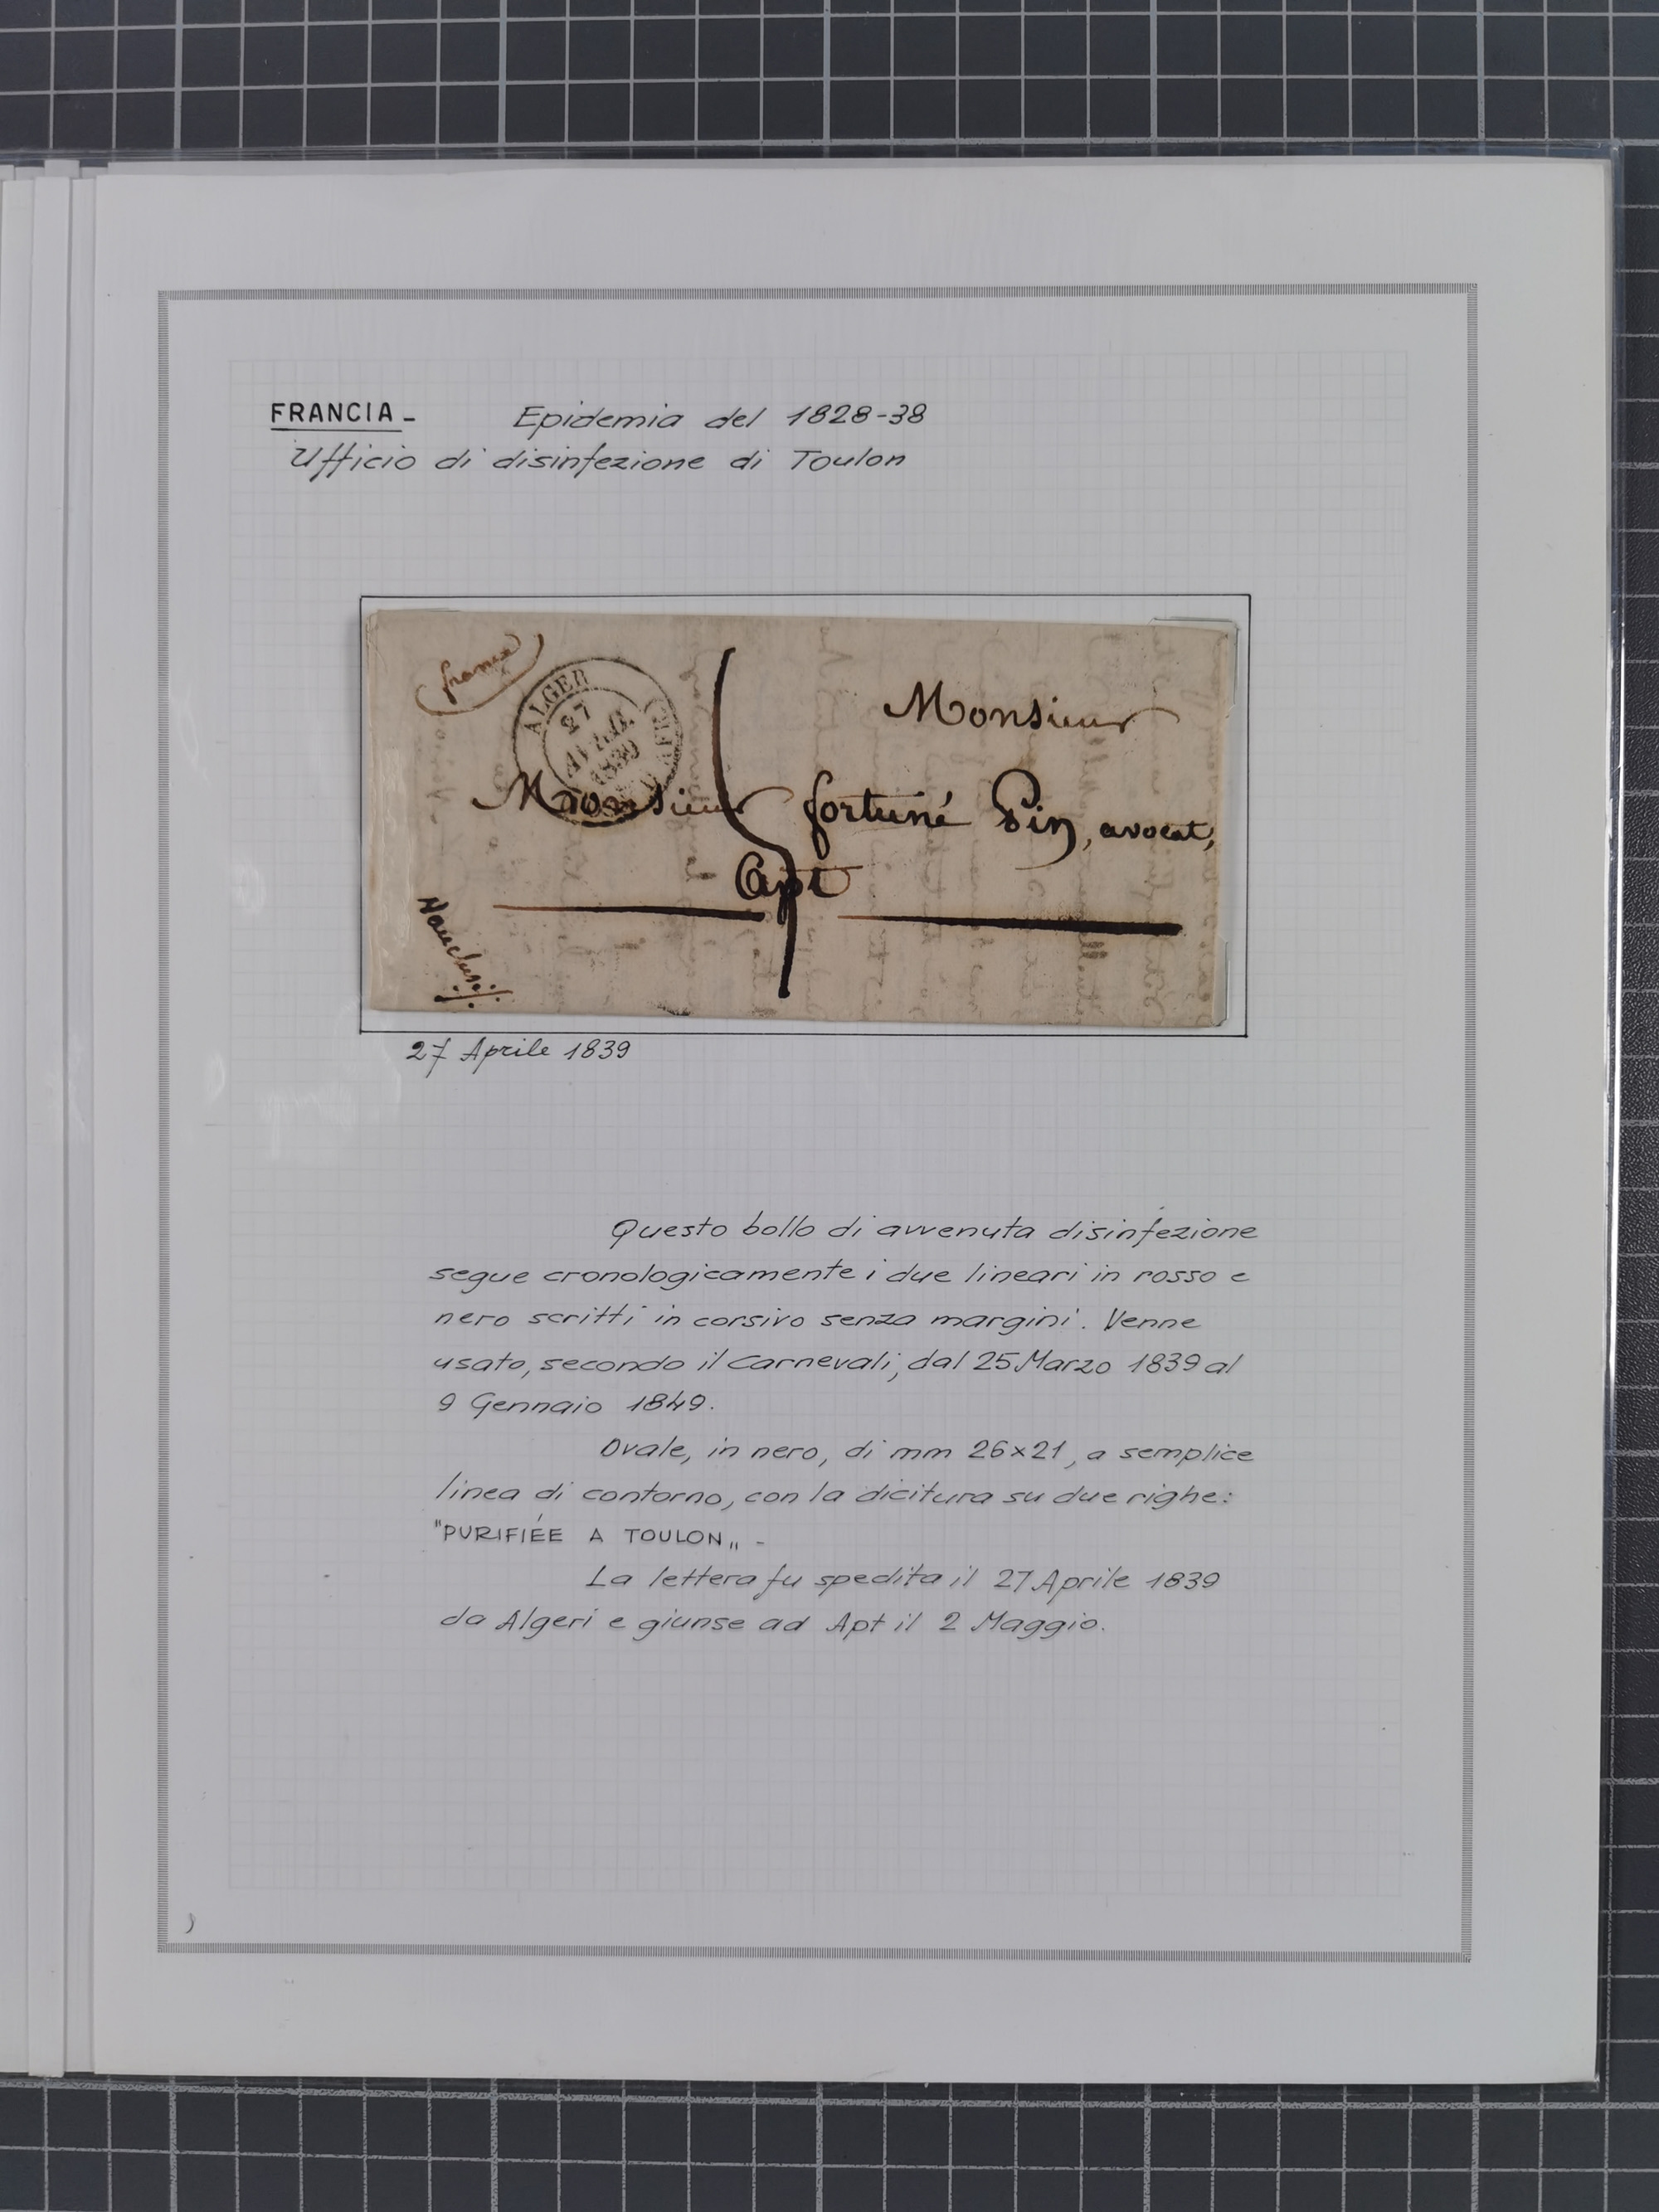 FRANCIA - Epidemia del 1828-38
Ufficio di disinfezione di Toulon
france
ALGER
27
AVRIL
1839
Monsieur
Monsieur fortuné Pin, avocat,
Apt
Vaucluse
27 Aprile 1839
Questo bollo di avvenuta disinfezione
segue cronologicamente i due lineari in rosso e
nero scritti in corsivo senza margini. Venne
usato, secondo il Carnevali, dal 25 Marzo 1839 al
9 Gennaio 1849.
Ovale, in nero, di mm 26x21, a semplice
linea di contorno, con la dicitura su due righe:
"PURIFIÉE A TOULON„ -
La lettera fu spedita il 27 Aprile 1839
da Algeri e giunse ad Apt il 2 Maggio.